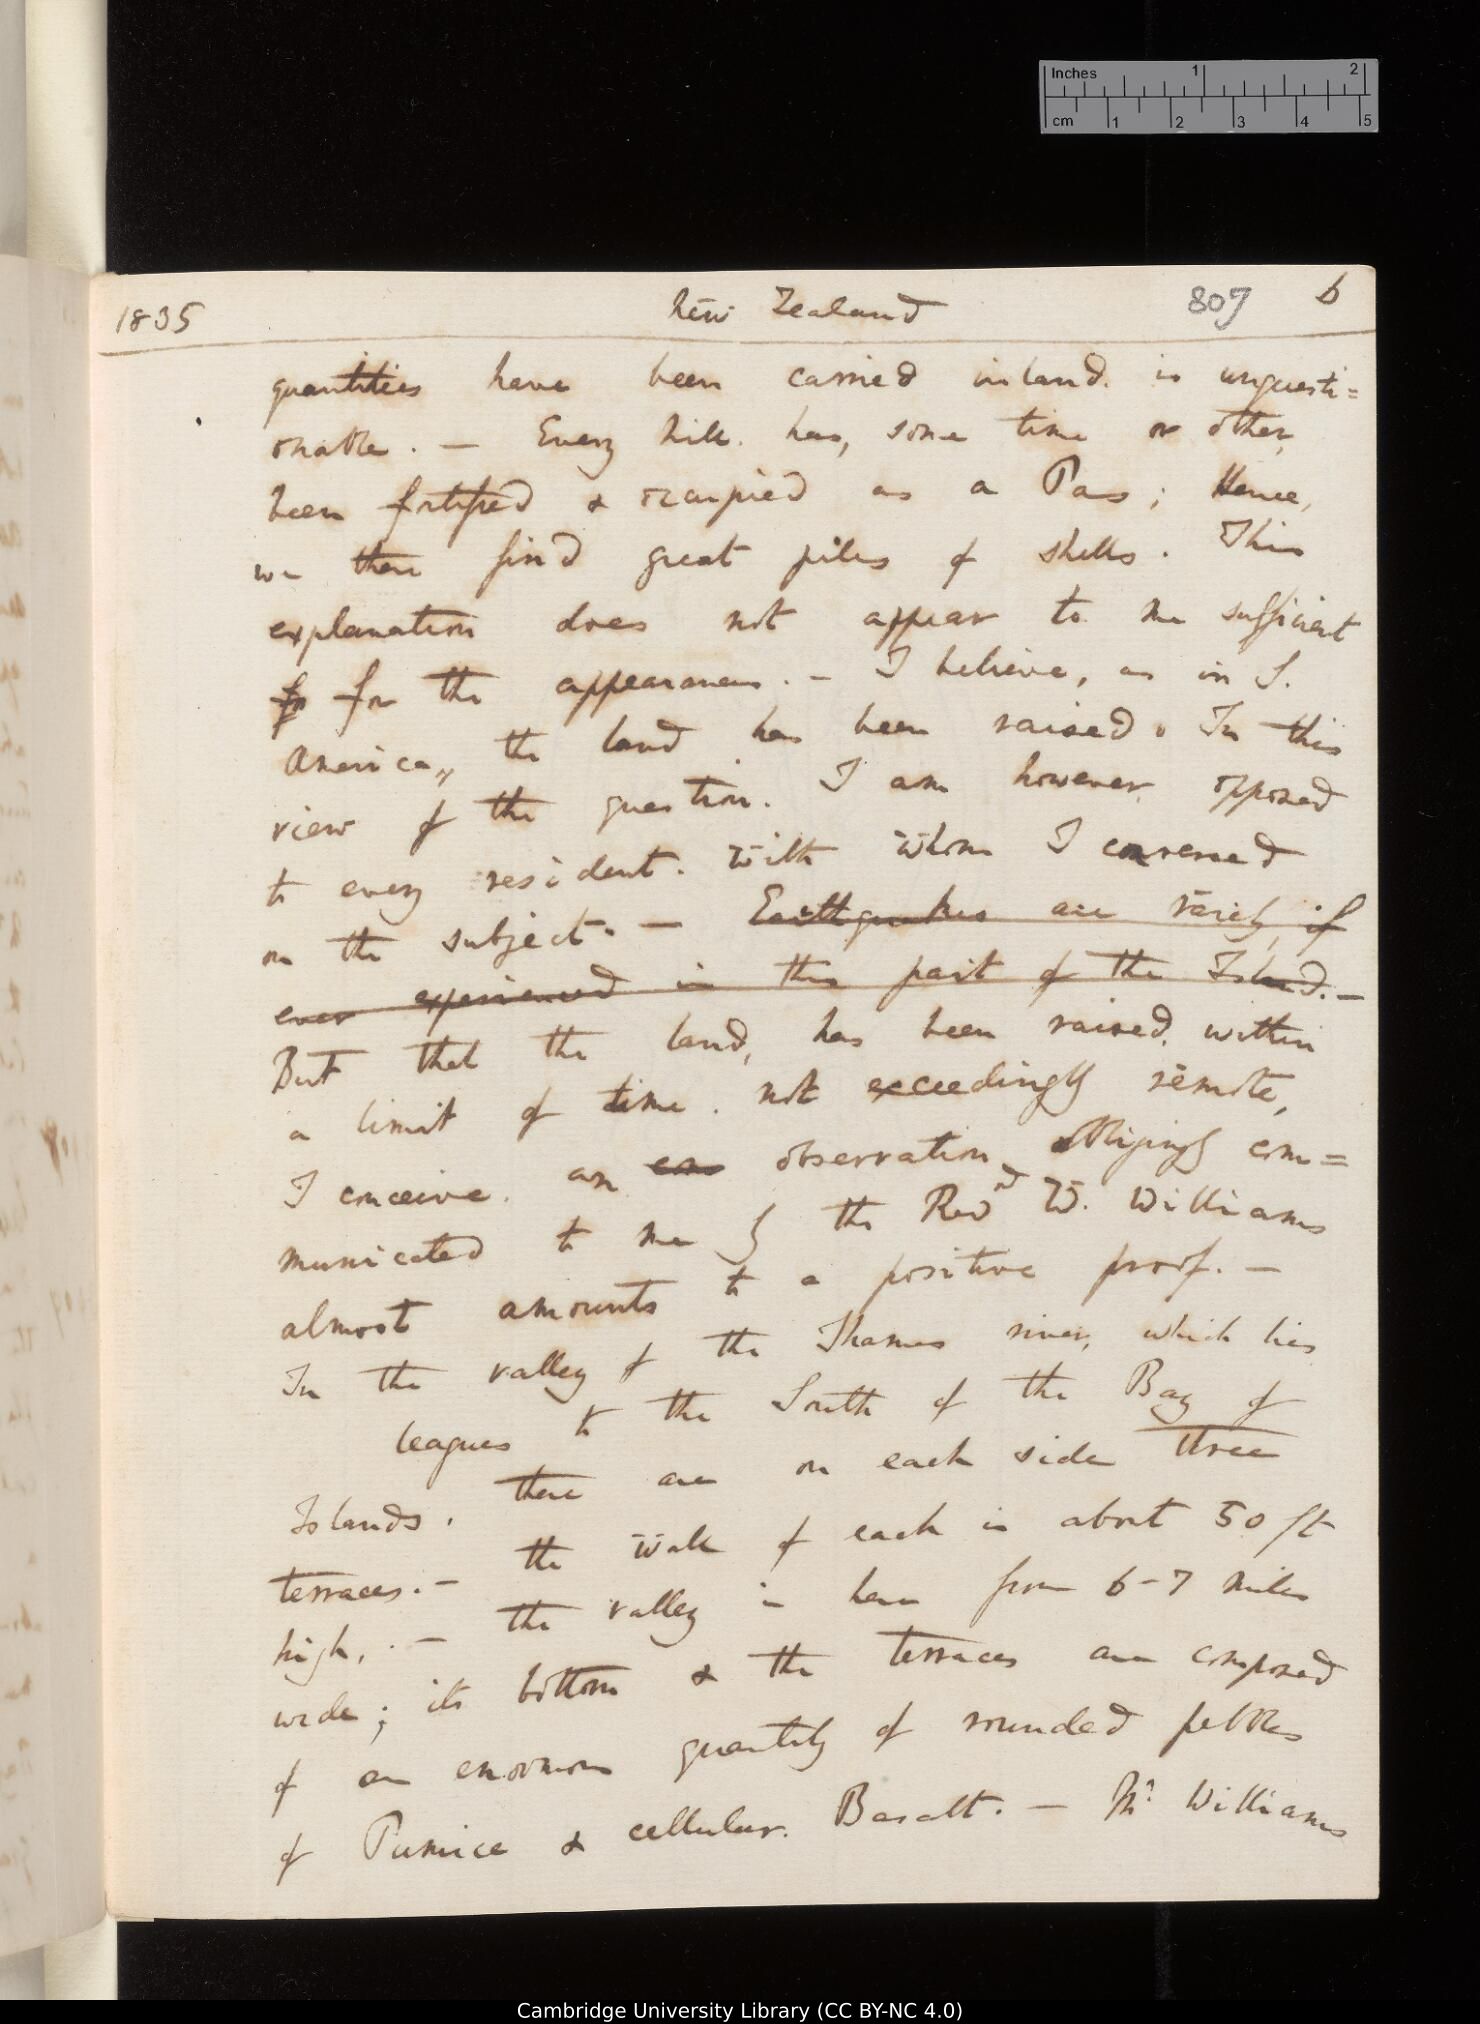 Inches 1 2
cm 1 2 3 4 5
1835 New Zealand 807 6
quantities have been carried inland. is unquesti=
onable. — Every hill. has, some time or other,
been fortified & occupied as a Pas; Hence,
we there find great piles of shells. This
explanation does not appear to me sufficient
for for the appearances. — I believe, as in S.
America,, the land has been raised. In this
view of the question. I am however opposed
to every resident. with whom I conversed
on the subject. — Earthquakes are rarely, if
ever experienced in this part of the Island. —
But that the land, has been raised, within
a limit of time. not exceedingly remote,
I conceive. an observation, obligingly com=
municated to me by the Revd W. Williams
almost amounts to a positive proof. —
In the valley of the Thames river, which lies
leagues to the South of the Bay of
Islands. there are on each side three
terraces. — the wall of each is about 50 ft
high, . — the valley is here from 6-7 miles
wide; its bottom & the terraces are composed
of an enormous quantity of rounded pebbles
of Pumice & cellular. Basalt. — Mr Williams
Cambridge University Library (CC BY-NC 4.0)